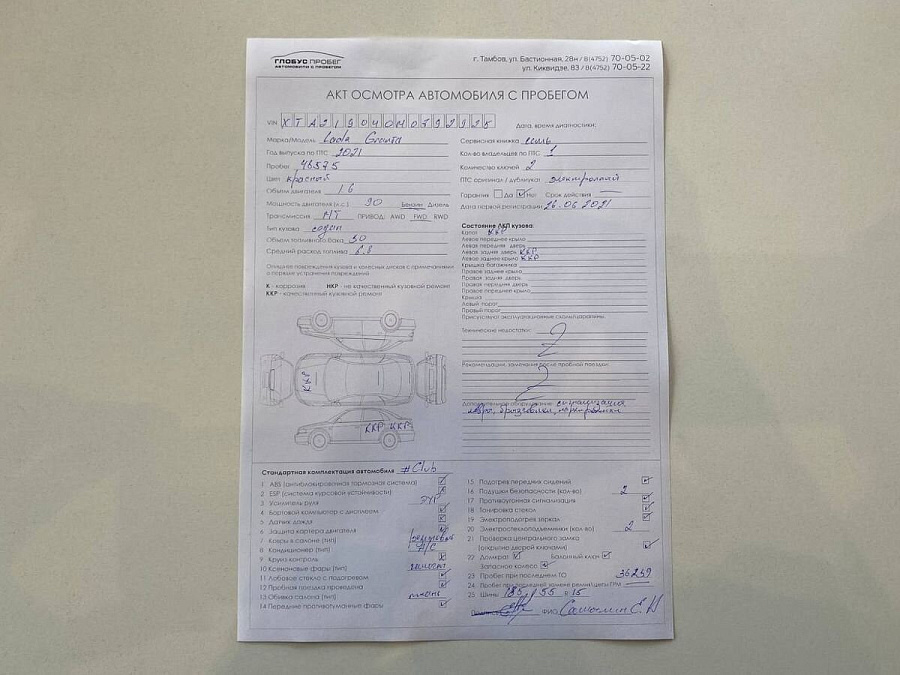 ГЛОБУС ПРОБЕГ
АВТОМОБИЛИ С ПРОБЕГОМ
г. Тамбов, ул. Бастионная, 28н / 8(4752) 70-05-02
ул. Киквидзе, 83 / 8(4752) 70-05-22
АКТ ОСМОТРА АВТОМОБИЛЯ С ПРОБЕГОМ
VIN
Дата, время диагностики:
Марка/Модель Lada Granta
Год выпуска по ПТС 2021
Пробег 48575
Цвет красный
Объем двигателя 1.6
Мощность двигателя (л.с.) 90 Бензин Дизель
Трансмиссия МТ ПРИВОД: AWD FWD RWD
Тип кузова седан
Объем топливного бака 50
Средний расход топлива 6.8
Сервисная книжка есть
Кол-во владельцев по ПТС 1
Количество ключей 2
ПТС оригинал / дубликат электронный
Гарантия Да Нет Срок действия
Дата первой регистрации 26.06.2021
Опишите повреждения кузова и колесных дисков с примечаниями
о порядке устранения повреждений
К - коррозия НКР - не качественный кузовной ремонт
ККР - качественный кузовной ремонт
Состояние ЛКП кузова:
Капот ККР
Левое переднее крыло
Левая передняя дверь
Левая задняя дверь ККР
Левое заднее крыло ККР
Крышка багажника
Правое заднее крыло
Правая задняя дверь
Правая передняя дверь
Правое переднее крыло
Крыша
Левый порог
Правый порог
Присутствуют эксплуатационные сколы/царапины
Технические недостатки:
Рекомендации, замечания после пробной поездки:
Дополнительное оборудование: сигнализация
ковры, брызговики, парктроники
ККР
ККР ККР
Стандартная комплектация автомобиля #Club
1 ABS (антиблокировочная тормозная система)
2 ESP (система курсовой устойчивости)
3 Усилитель руля ЭУР
4 Бортовой компьютер с дисплеем
5 Датчик дождя
6 Защита картера двигателя
7 Ковры в салоне (тип)
8 Кондиционер (тип) A/C
9 Круиз-контроль
10 Ксеноновые фары (тип)
11 Лобовое стекло с подогревом
12 Пробная поездка проведена
13 Обивка салона (тип) ткань
14 Передние противотуманные фары
15 Подогрев передних сидений
16 Подушки безопасности (кол-во) 2
17 Противоугонная сигнализация
18 Тонировка стекол
19 Электроподогрев зеркал
20 Электростеклоподъемники (кол-во) 2
21 Проверка центрального замка
(открытие дверей ключами)
22 Домкрат Балонный ключ
Запасное колесо
23 Пробег при последнем ТО 36259
24 Пробег при последней замене ремня/цепи ГРМ
25 Шины 185 / 55 R 15
ФИО